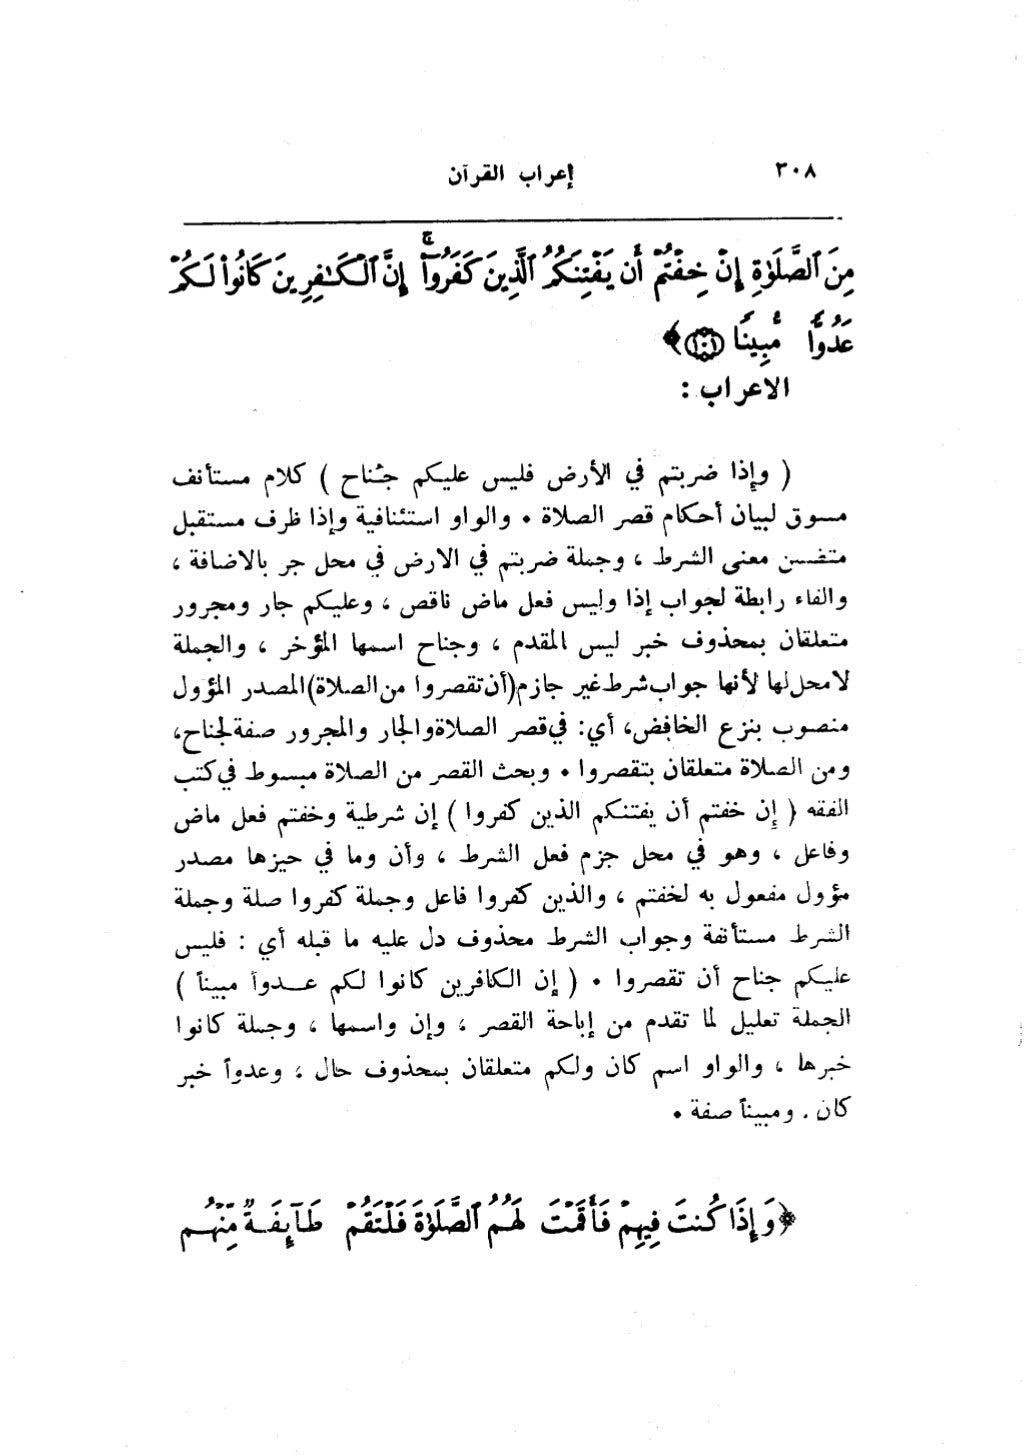 ٣٠٨
إعراب القرآن
مِنَ ٱلصَّلَوٰةِ إِنْ خِفْتُمْ أَن يَفْتِنَكُمُ ٱلَّذِينَ كَفَرُوٓاْۚ إِنَّ ٱلْكَٰفِرِينَ كَانُواْ لَكُمْ
عَدُوًّا مُّبِينًا ﴿١٠١﴾
الاعراب :
( وإذا ضربتم في الأرض فليس عليكم جُناح ) كلام مستأنف
مسوق لبيان أحكام قصر الصلاة . والواو استئنافية وإذا ظرف مستقبل
متضمن معنى الشرط ، وجملة ضربتم في الارض في محل جر بالاضافة ،
والفاء رابطة لجواب إذا وليس فعل ماض ناقص ، وعليكم جار ومجرور
متعلقان بمحذوف خبر ليس المقدم ، وجناح اسمها المؤخر ، والجملة
لا محل لها لأنها جواب شرط غير جازم (أن تقصروا من الصلاة) المصدر المؤول
منصوب بنزع الخافض، أي: في قصر الصلاة والجار والمجرور صفة لجناح،
ومن الصلاة متعلقان بتقصروا . وبحث القصر من الصلاة مبسوط في كتب
الفقه ( إن خفتم أن يفتنكم الذين كفروا ) إن شرطية وخفتم فعل ماض
وفاعل ، وهو في محل جزم فعل الشرط ، وأن وما في حيزها مصدر
مؤول مفعول به لخفتم ، والذين كفروا فاعل وجملة كفروا صلة وجملة
الشرط مستأنفة وجواب الشرط محذوف دل عليه ما قبله أي : فليس
عليكم جناح أن تقصروا . ( إن الكافرين كانوا لكم عــدواً مبيناً )
الجملة تعليل لما تقدم من إباحة القصر ، وإن واسمها ، وجملة كانوا
خبرها ، والواو اسم كان ولكم متعلقان بمحذوف حال ، وعدواً خبر
كان . ومبيناً صفة .
﴿ وَإِذَا كُنتَ فِيهِمْ فَأَقَمْتَ لَهُمُ ٱلصَّلَوٰةَ فَلْتَقُمْ طَآئِفَةٌ مِّنْهُم